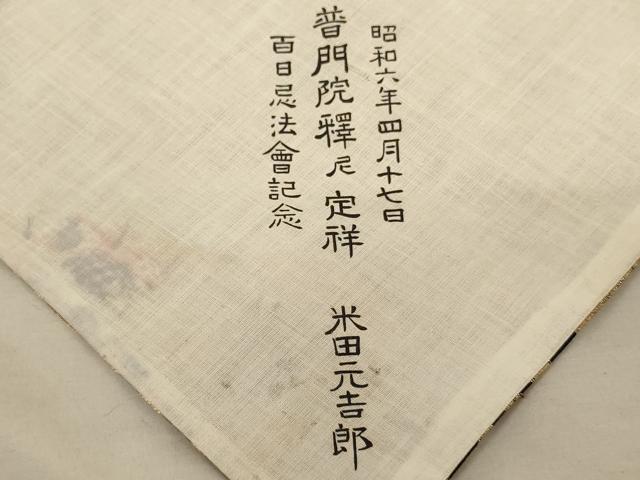 昭和六年四月十七日
普門院釋尼定祥 米田元吉郎
百日忌法會記念